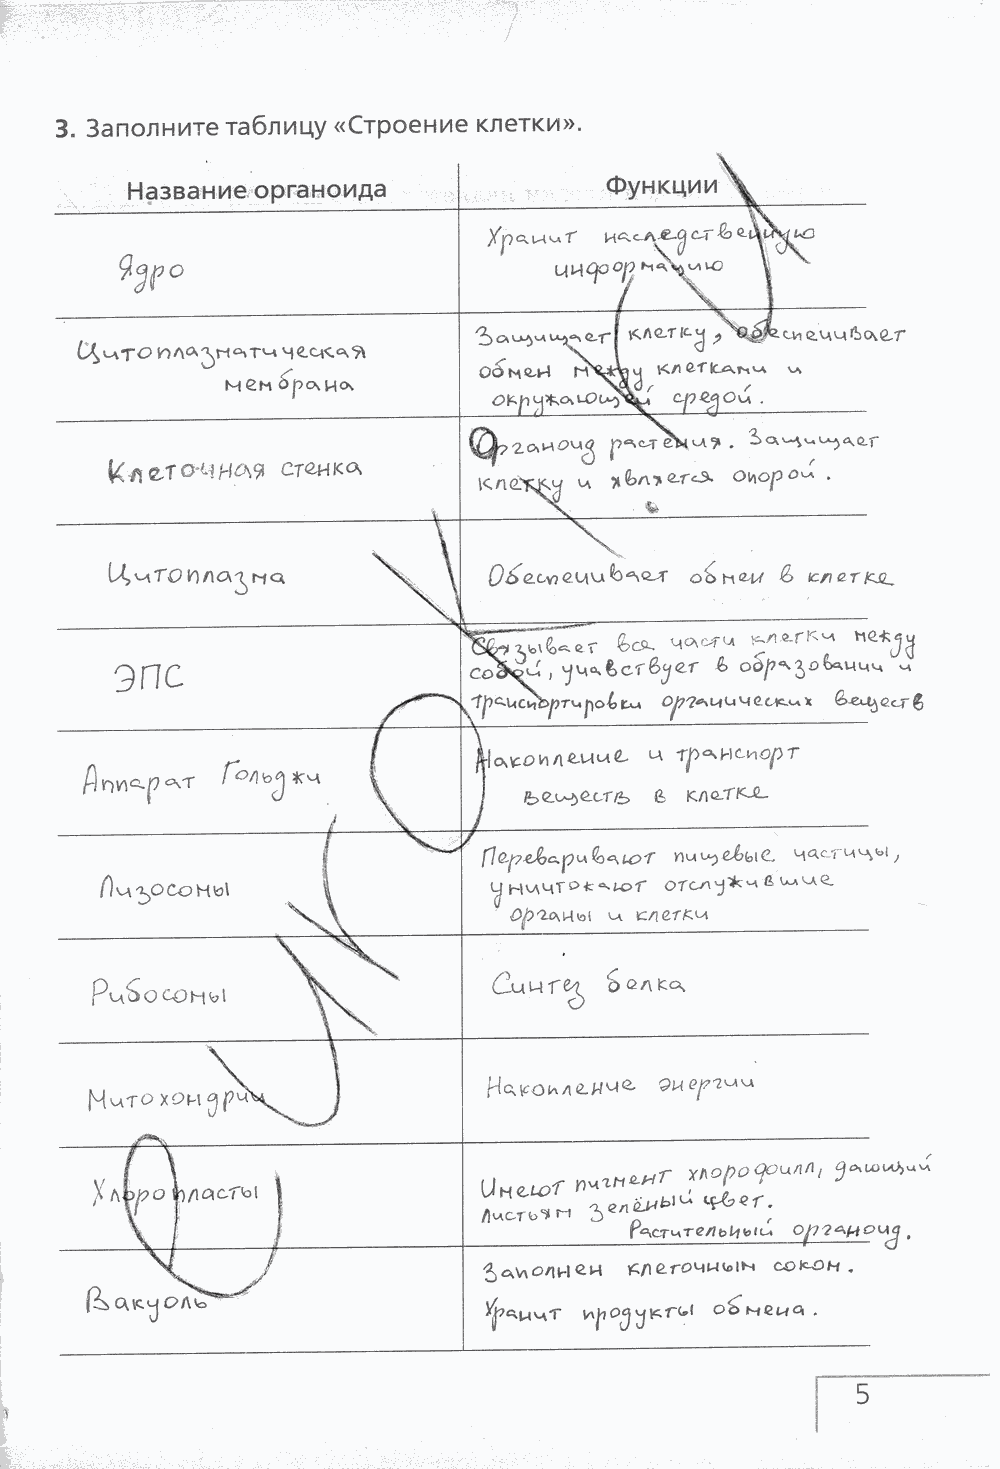 3. Заполните таблицу «Строение клетки».
Название органоида
Функции
Ядро
Хранит наследственную
информацию
Цитоплазматическая
мембрана
Защищает клетку, обеспечивает
обмен между клетками и
окружающей средой.
Клеточная стенка
Органоид растения. Защищает
клетку и является опорой.
Цитоплазма
Обеспечивает обмен в клетке
ЭПС
Связывает все части клетки между
собой, учавствует в образовании и
транспортировки органических веществ
Аппарат Гольджи
Накопление и транспорт
веществ в клетке
Лизосоны
Переваривают пищевые частицы,
уничтожают отслужившие
органы и клетки
Рибосоны
Синтез белка
Митохондрии
Накопление энергии
Хлоропласты
Имеют пигмент хлорофилл, дающий
листьям зелёный цвет.
Растительный органоид.
Вакуоль
Заполнен клеточным соком.
Хранит продукты обмена.
5